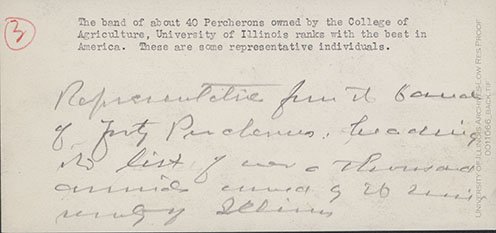 3
The band of about 40 Percherons owned by the College of
Agriculture, University of Illinois ranks with the best in
America. These are some representative individuals.
Representative from the band
of forty Percherons, heading
the list of over a thousand
animals owned by the Uni
versity Illinois
UNIVERSITY OF ILLINOIS ARCHIVES LOW RES PROOF
0011066_BACK.TIF